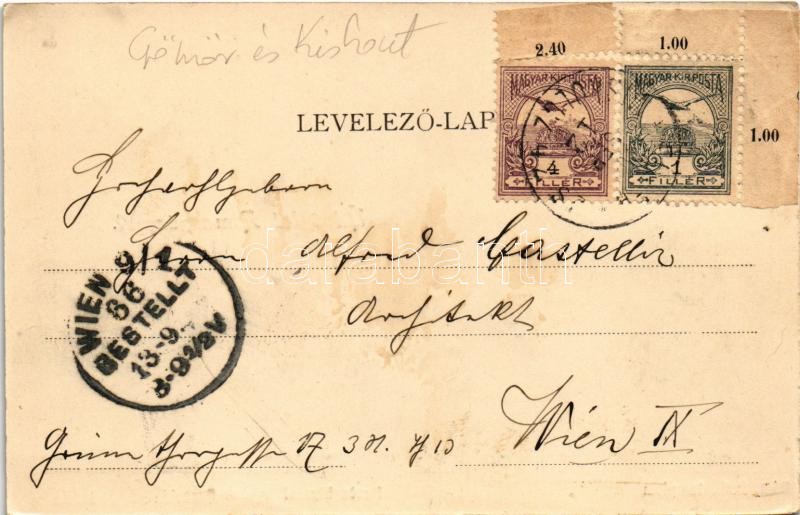 Gömör és Kishont
2.40
1.00
1.00
MAGYAR KIR. POSTA
MAGYAR KIR. POSTA
4
1
FILLÉR
FILLÉR
LEVELEZŐ-LAP
Hochwohlgeboren
Herrn Alfred Castelliz
Architekt
WIEN 9/1
66
BESTELLT
13·9
8-9½V
17 Wien IX
darabanth